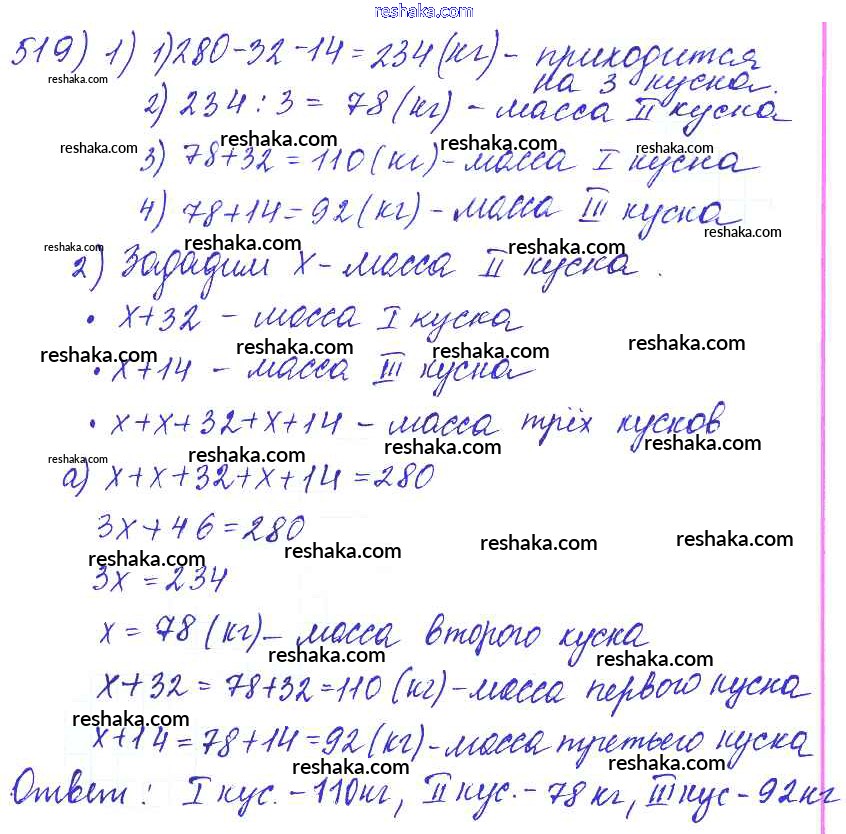 reshaka.com
519) 1) 1) 280-32-14=234(кг)- приходится
на 3 куска.
reshaka.com reshaka.com reshaka.com reshaka.com
2) 234:3= 78(кг) - масса II куска
reshaka.com reshaka.com reshaka.com reshaka.com
3) 78+32=110(кг)-масса I куска
4) 78+14=92(кг)-масса III куска
reshaka.com reshaka.com reshaka.com reshaka.com
2) Зададим x-масса II куска.
• x+32 - масса I куска
reshaka.com reshaka.com reshaka.com reshaka.com
• x+14 - масса III куска
• x+x+32+x+14 - масса трёх кусков
reshaka.com reshaka.com reshaka.com
а) x+x+32+x+14=280
3x+46=280
reshaka.com reshaka.com reshaka.com reshaka.com
3x=234
x=78(кг)- масса второго куска
reshaka.com reshaka.com
x+32=78+32=110(кг)-масса первого куска
reshaka.com reshaka.com
x+14=78+14=92(кг)-масса третьего куска
reshaka.com reshaka.com
Ответ: I кус.-110кг, II кус.-78кг, III кус-92кг